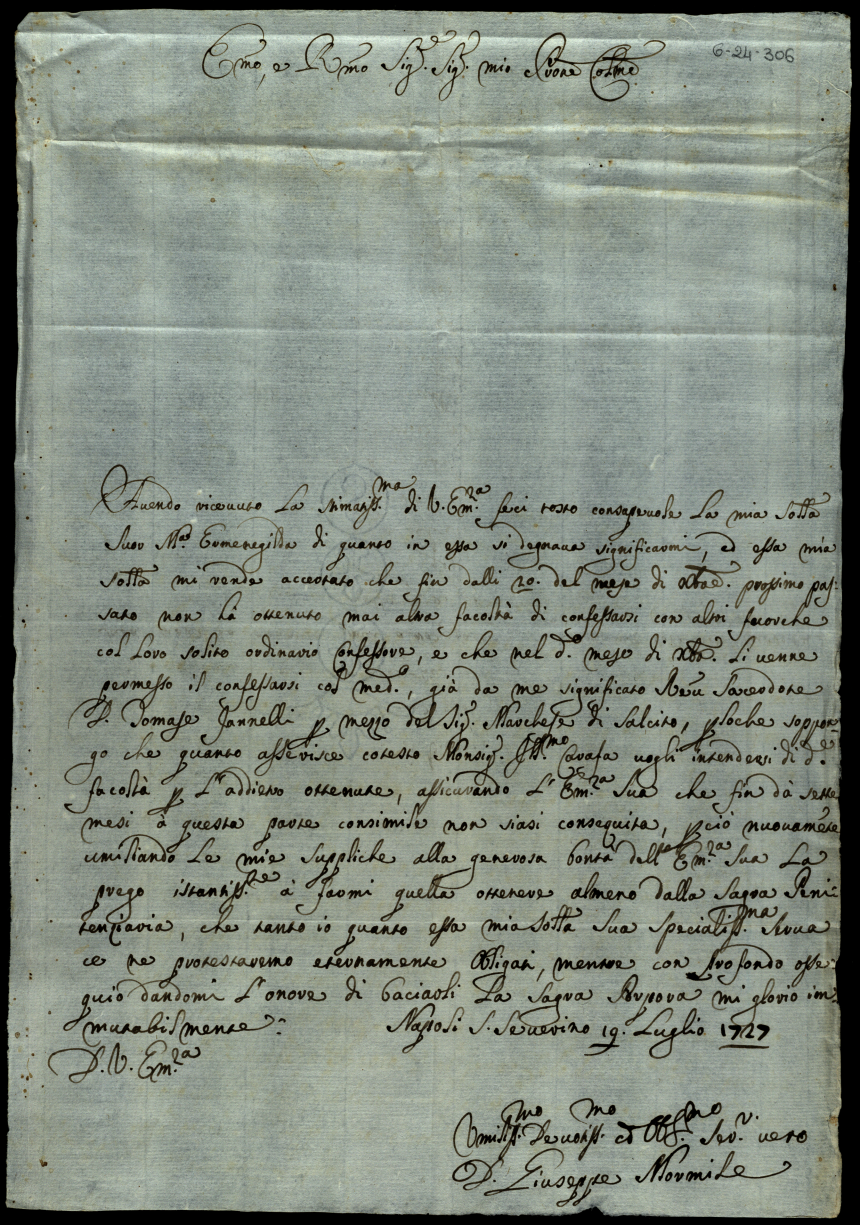 6-24-306
Emo, e Rmo Sig.r Sig.r mio Prone Colmo
Avendo ricevuto la stimatiss.ma di V. Em.za feci tosto consapevole la mia sorla
Suor M.a Ermenegilda di quanto in essa si degnava significarmi, ed essa mia
sorla mi rende accertato che fin dalli 20. del mese di Xbre. prossimo pas:
sato non hà ottenuto mai altra facoltà di confessarsi con altri fuorche
col loro solito ordinario Confessore, e che nel d.o mese di Xbre. li venne
permesso il confessarsi col med.o, già da me significato Sacerdote
D. Tomase Jannelli p mezzo del Sig.r Marchese di Salcito, p loche suppon:
go che quanto asserisce cotesto Monsig.r Ill.mo Carafa vogli intendersi di d.e
facoltà p l'addietro ottenute, assicurando l'Em.za Sua che fin dà sette
mesi à questa parte consimile non siasi conseguita, pciò nuovamete
umiliando le mie suppliche alla generosa bontà dell'Em.za Sua La
prego istantiss.te à farmi quella ottenere almeno dalla Sagra Peni:
tenziaria, che tanto io quanto essa mia sorla Sua specialiss.ma Serva
ce ne protestaremo eternamente obligati, mentre con profondo osse:
quio dandomi l'onore di baciarli La Sagra Porpora mi glorio im:
mutabilmente:
Napoli S. Severino 19. Luglio 1727
D. V. Em.za
Umiliss.mo Devotiss.mo ed Obl.mo Ser.r vero
D. Giuseppe Mormile